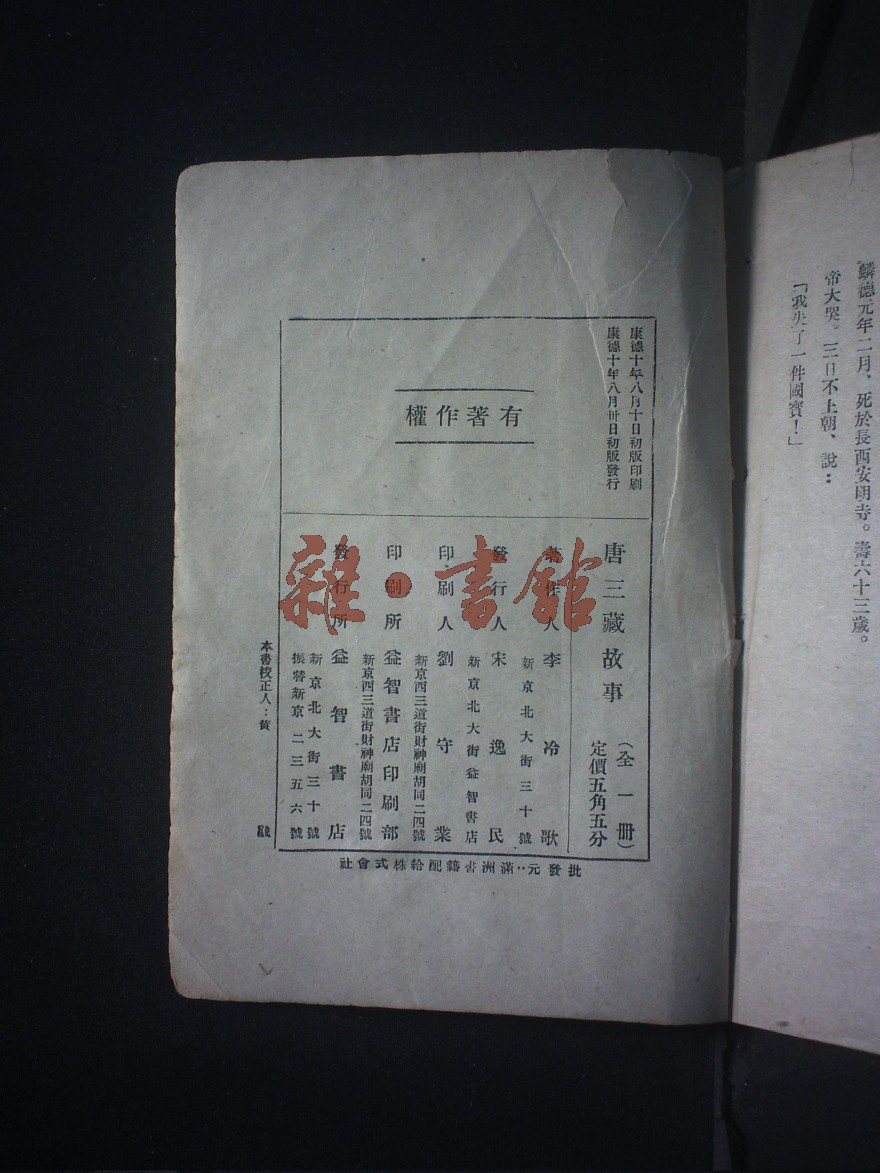 麟德元年二月、死於長西安明寺。壽六十三歲。
帝大哭。三日不上朝、說：
「我失了一件國寶！」
康德十年八月十日初版印刷
康德十年八月卅日初版發行
有著作權
唐三藏故事
（全一冊）
定價五角五分
著作人 李冷歌
新京北大街三十號
發行人 宋逸民
新京北大街益智書店
印刷人 劉守業
新京西三道街財神廟胡同二四號
印刷所 益智書店印刷部
新京西三道街財神廟胡同二四號
發行所 益智書店
新京北大街三十號
振替新京二三五六號
批發元：滿洲書籍配給株式會社
本書校正人：黃
雜·書館